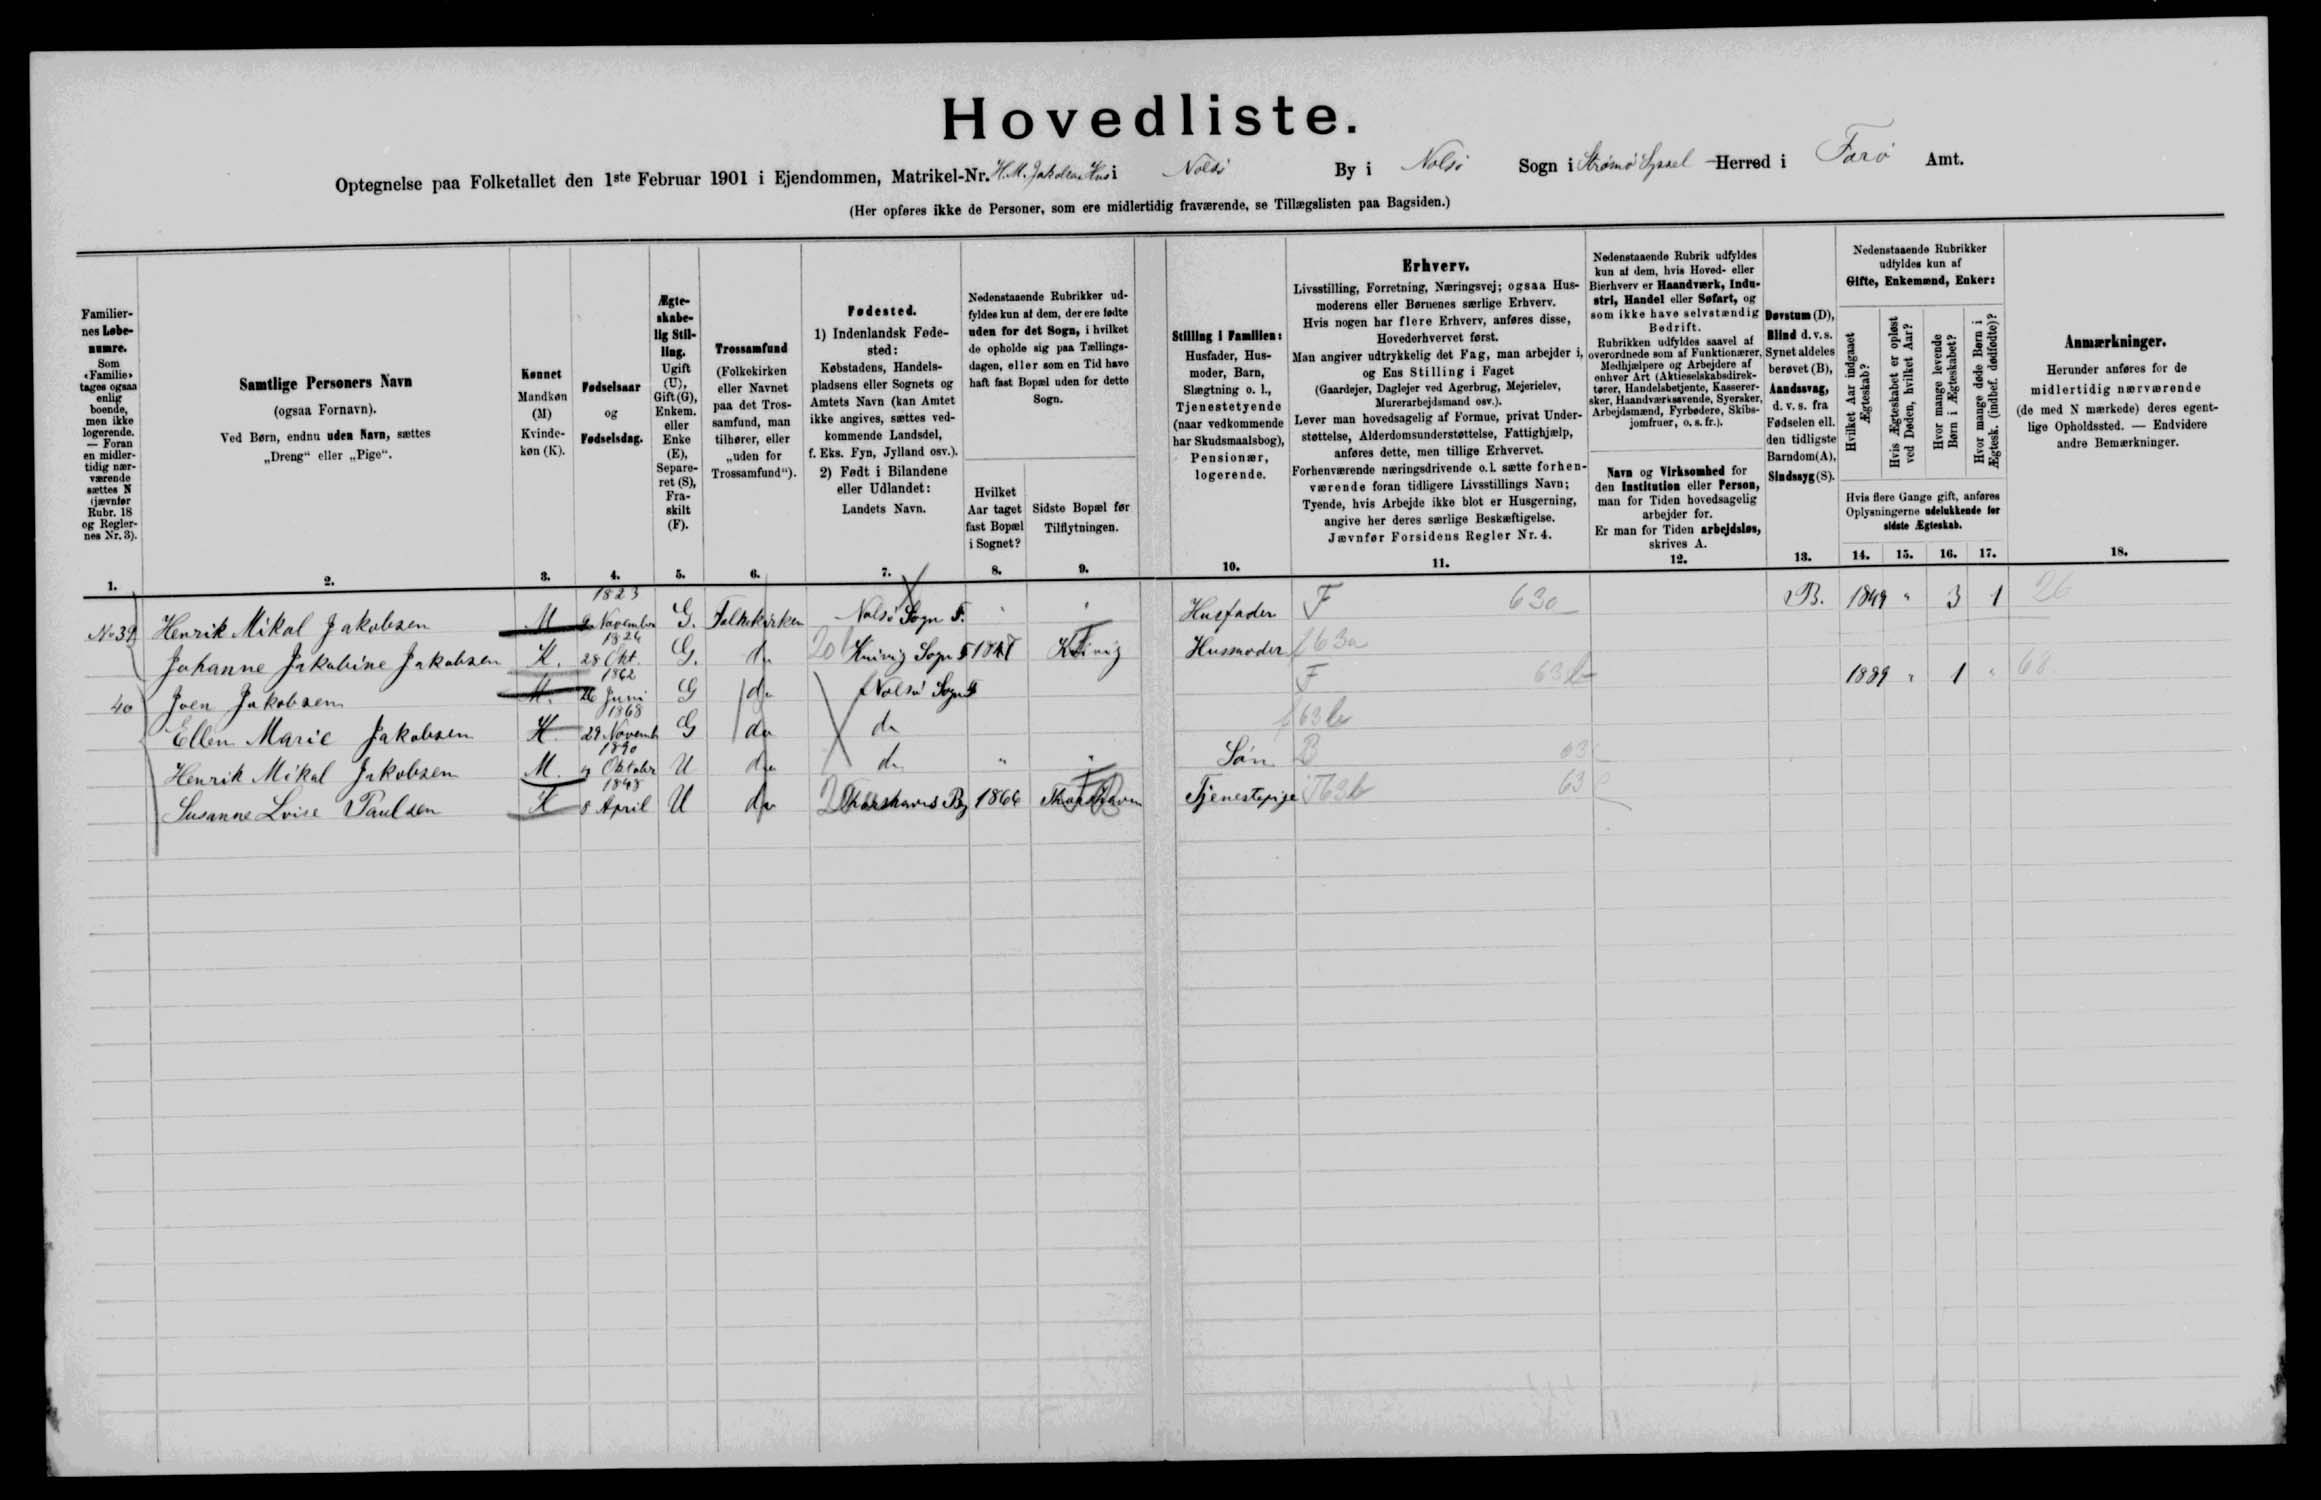 Hovedliste.
Optegnelse paa Folketallet den 1ste Februar 1901 i Ejendommen, Matrikel-Nr. H. M. Jakobsens Hus i Nolsö By i Nolsö Sogn i Strömö Syssel Herred i Farö Amt.
(Her opføres ikke de Personer, som ere midlertidig fraværende, se Tillægslisten paa Bagsiden.)
Familier-
nes Løbe-
numre.
Som
«Familie»
tages ogsaa
enlig
boende,
men ikke
logerende.
— Foran
en midler-
tidig nær-
værende
sættes N
(jævnfør
Rubr. 18
og Regler-
nes Nr. 3).
1.
Samtlige Personers Navn
(ogsaa Fornavn).
Ved Børn, endnu uden Navn, sættes
„Dreng“ eller „Pige“.
2.
Kønnet
Mandkøn
(M)
Kvinde-
køn (K).
3.
Fødselsaar
og
Fødselsdag.
4.
Ægte-
skabe-
lig Stil-
ling.
Ugift
(U),
Gift (G),
Enkem.
eller
Enke
(E),
Separe-
ret (S),
Fra-
skilt
(F).
5.
Trossamfund
(Folkekirken
eller Navnet
paa det Tros-
samfund, man
tilhører, eller
„uden for
Trossamfund“).
6.
Fødested.
1) Indenlandsk Føde-
sted:
Købstadens, Handels-
pladsens eller Sognets og
Amtets Navn (kan Amtet
ikke angives, sættes ved-
kommende Landsdel,
f. Eks. Fyn, Jylland osv.).
2) Født i Bilandene
eller Udlandet:
Landets Navn.
7.
Nedenstaaende Rubrikker ud-
fyldes kun af dem, der ere fødte
uden for det Sogn, i hvilket
de opholde sig paa Tællings-
dagen, eller som en Tid have
haft fast Bopæl uden for dette
Sogn.
Hvilket
Aar taget
fast Bopæl
i Sognet?
8.
Sidste Bopæl før
Tilflytningen.
9.
Stilling i Familien:
Husfader, Hus-
moder, Barn,
Slægtning o. l.,
Tjenestetyende
(naar vedkommende
har Skudsmaalsbog),
Pensionær,
logerende.
10.
Erhverv.
Livsstilling, Forretning, Næringsvej; ogsaa Hus-
moderens eller Børnenes særlige Erhverv.
Hvis nogen har flere Erhverv, anføres disse,
Hovederhvervet først.
Man angiver udtrykkelig det Fag, man arbejder i,
og Ens Stilling i Faget
(Gaardejer, Daglejer ved Agerbrug, Mejerielev,
Murerarbejdsmand osv.).
Lever man hovedsagelig af Formue, privat Under-
støttelse, Alderdomsunderstøttelse, Fattighjælp,
anføres dette, men tillige Erhvervet.
Forhenværende næringsdrivende o. l. sætte forhen-
værende foran tidligere Livsstillings Navn;
Tyende, hvis Arbejde ikke blot er Husgerning,
angive her deres særlige Beskæftigelse.
Jævnfør Forsidens Regler Nr. 4.
11.
Nedenstaaende Rubrik udfyldes
kun af dem, hvis Hoved- eller
Bierhverv er Haandværk, Indu-
stri, Handel eller Søfart, og
som ikke have selvstændig
Bedrift.
Rubrikken udfyldes saavel af
overordnede som af Funktionærer,
Medhjælpere og Arbejdere af
enhver Art (Aktieselskabsdirek-
tører, Handelsbetjente, Kasserer-
sker, Haandværkssvende, Syersker,
Arbejdsmænd, Fyrbødere, Skibs-
jomfruer, o. s. fr.).
Navn og Virksomhed for
den Institution eller Person,
man for Tiden hovedsagelig
arbejder for.
Er man for Tiden arbejdsløs,
skrives A.
12.
Døvstum (D),
Blind d. v. s.
Synet aldeles
berøvet (B),
Aandssvag,
d. v. s. fra
Fødselen ell.
den tidligste
Barndom (A),
Sindssyg (S).
13.
Nedenstaaende Rubrikker
udfyldes kun af
Gifte, Enkemænd, Enker:
Hvilket Aar indgaaet
Ægteskab?
Hvis Ægteskabet er opløst
ved Døden, hvilket Aar?
Hvor mange levende
Børn i Ægteskabet?
Hvor mange døde Børn i
Ægtesk. (indbef. dødfødte)?
Hvis flere Gange gift, anføres
Oplysningerne udelukkende for
sidste Ægteskab.
14. 15. 16. 17.
Anmærkninger.
Herunder anføres for de
midlertidig nærværende
(de med N mærkede) deres egent-
lige Opholdssted. — Endvidere
andre Bemærkninger.
18.
No 39 Henrik Mikal Jakobsen M 1823 9 November G. Folkekirken Nolsö Sogn F. " " Husfader F 63a B. 1849 " 3 1 26
Johanne Jakobine Jakobsen K. 1824 28 Okt. G. do Kvivig Sogn F Kvivig Husmoder f 63a
40 Joen Jakobsen M. 1862 26 Juni G do Nolsö Sogn F F 63b 1889 " 1 " 68
Ellen Marie Jakobsen K 1868 29 Novemb G do do f 63b
Henrik Mikal Jakobsen M. 1890 Oktober U do do " " Sön B 63
Susanne Lvise Paulsen K 1848 8 April U do Thorshavns By 1866 Thorshavn Tjenestepige T63b 63